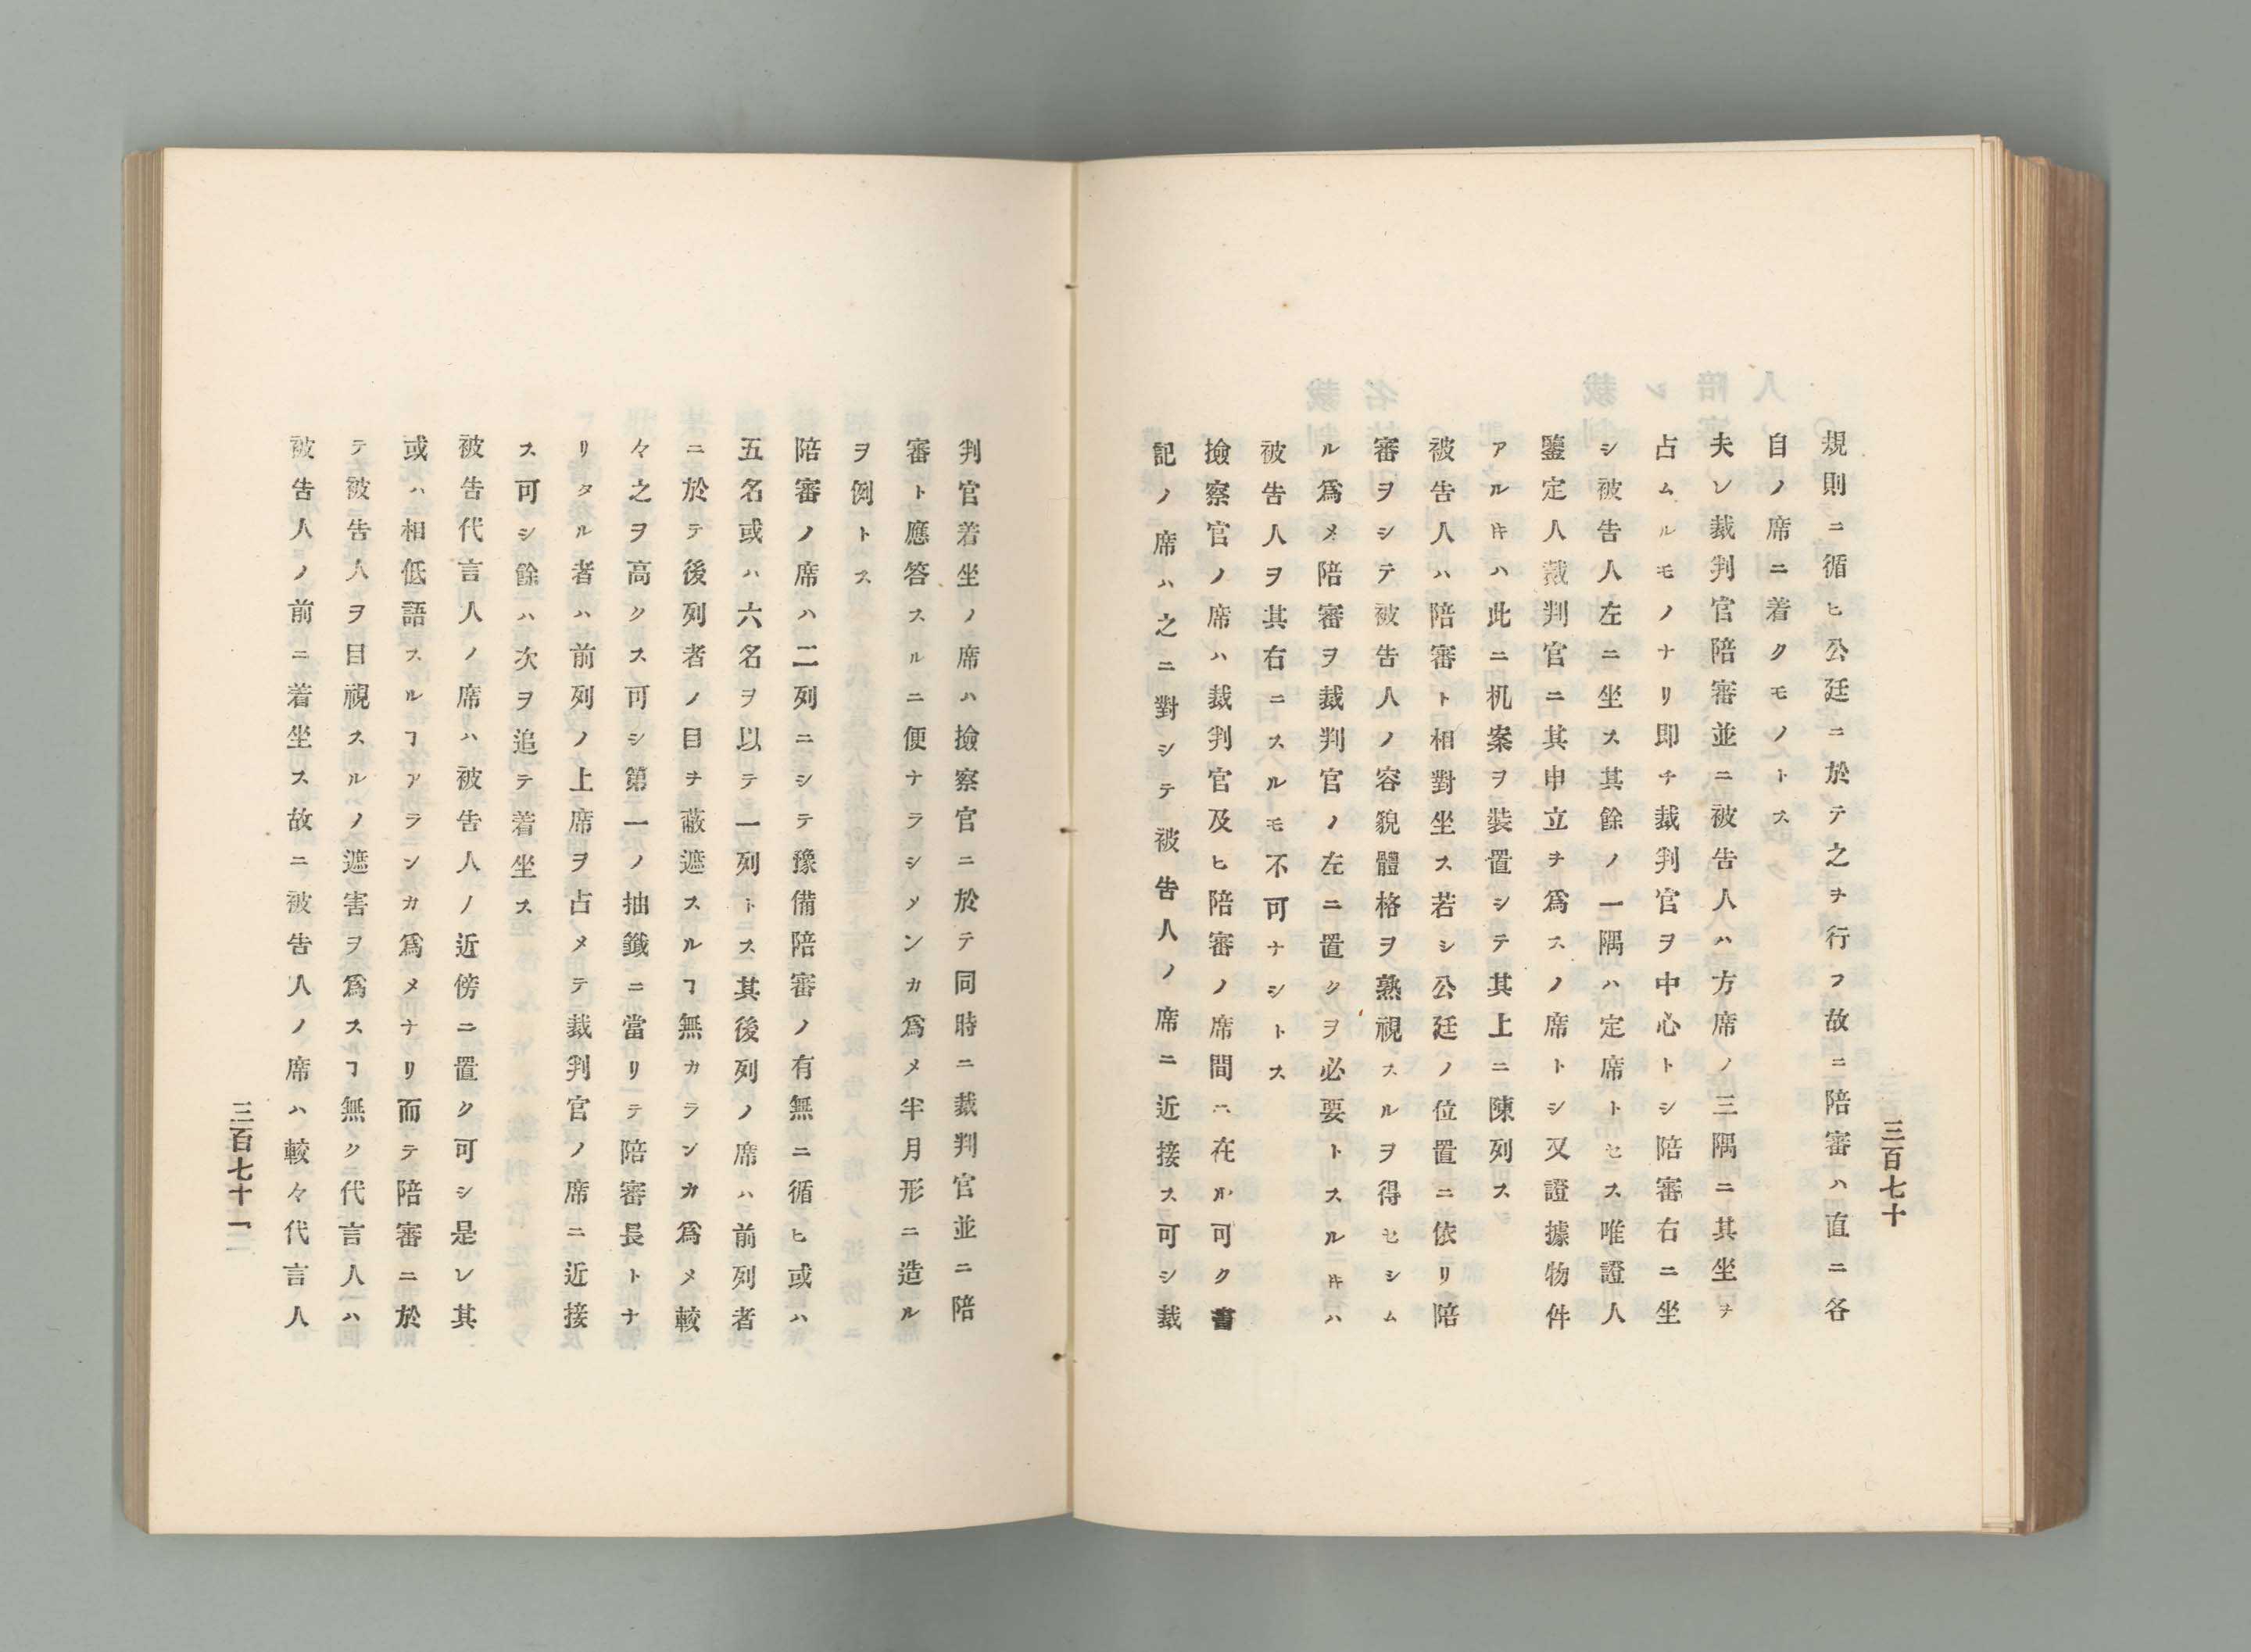 三百七十
規則ニ循ヒ公廷ニ於テ之ヲ行フ故ニ陪審ハ直ニ各
自ノ席ニ着クモノトス
夫レ裁判官陪審並ニ被告人ハ方席ノ三隅ニ其坐ヲ
占ムルモノナリ即チ裁判官ヲ中心トシ陪審右ニ坐
シ被告人左ニ坐ス其餘ノ一隅ハ定席トセス唯證人
鑒定人裁判官ニ其申立ヲ爲スノ席トシ又證據物件
アルキハ此ニ机案ヲ裝置シテ其上ニ陳列ス
被告人ハ陪審ト相對坐ス若シ公廷ノ位置ニ依リ陪
審ヲシテ被告人ノ容貌體格ヲ熟視スルヲ得セシム
ル爲メ陪審ヲ裁判官ノ左ニ置クヲ必要トスルキハ
被告人ヲ其右ニスルモ不可ナシトス
撿察官ノ席ハ裁判官及ヒ陪審ノ席間ニ在ル可ク書
記ノ席ハ之ニ對シテ被告人ノ席ニ近接ス可シ裁
判官着坐ノ席ハ撿察官ニ於テ同時ニ裁判官並ニ陪
審ト應答スルニ便ナラシメンカ爲メ半月形ニ造ル
ヲ例トス
陪審ノ席ハ二列ニシテ豫備陪審ノ有無ニ循ヒ或ハ
五名或ハ六名ヲ以テ一列トス其後列ノ席ハ前列者
ニ於テ後列者ノ目ヲ蔽遮スルヿ無カランカ爲メ較
々之ヲ高クス可シ第一ノ抽籤ニ當リテ陪審長トナ
リタル者ハ前列ノ上席ヲ占メテ裁判官ノ席ニ近接
ス可シ餘ハ次ヲ追テ着坐ス
被告代言人ノ席ハ被告人ノ近傍ニ置ク可シ是レ其
或ハ相低語スルヿアランカ爲メナリ而テ陪審ニ於
テ被告人ヲ目視スルノ遮害ヲ爲スヿ無ク代言人ハ
被告人ノ前ニ着坐ス故ニ被告人ノ席ハ較々代言人
三百七十一